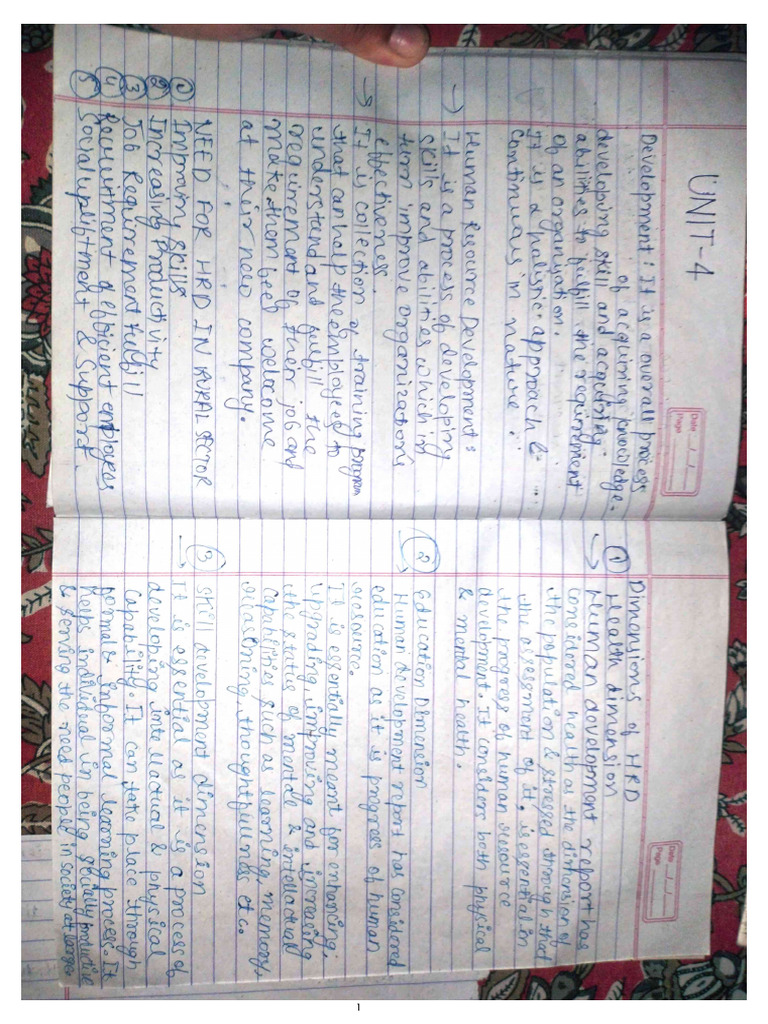 UNIT-4
Date __/__/__
Page
Development: It is a overall process
of acquiring knowledge-
developing skill and acquiring
abilities to fulfill the requirement
of an organization.
It is a holistic approach &
continuous in nature.
Human Resource Development:
→ It is a process of developing
skills and abilities which in
turn improve organizations
effectiveness.
→ It is collection of training program
that can help the employees to
understand and fulfill the
requirement of their job and
make them beef welcome
at their new company.
NEED FOR HRD IN RURAL SECTOR
① Improving skills
② Increasing Productivity
③ Job Requirement fulfill
④ Recruitment of efficient employees
⑤ Social upliftment & Support.
Date __/__/__
Page
Dimensions of HRD
① Health dimension
→ Human development report has
considered health as the dimension of
the population & stressed through that
the assessment of it, is essential in
the progress of human resource
development. It considers both physical
& mental health.
② Education Dimension
→ Human development report has considered
education as it is progress of human
resource.
It is essentially meant for enhancing,
upgrading, improving and increasing
the status of mental & intellactual
capabilities such as learning, memory,
reasoning, thoughtfullness etc.
③ Skill development dimension
→ It is essential as it is a process of
developing intellactual & physical
capability. It can take place through
formal & informal learning process. It
keeps individual in being socially productive
& serving the need people in society at large
1